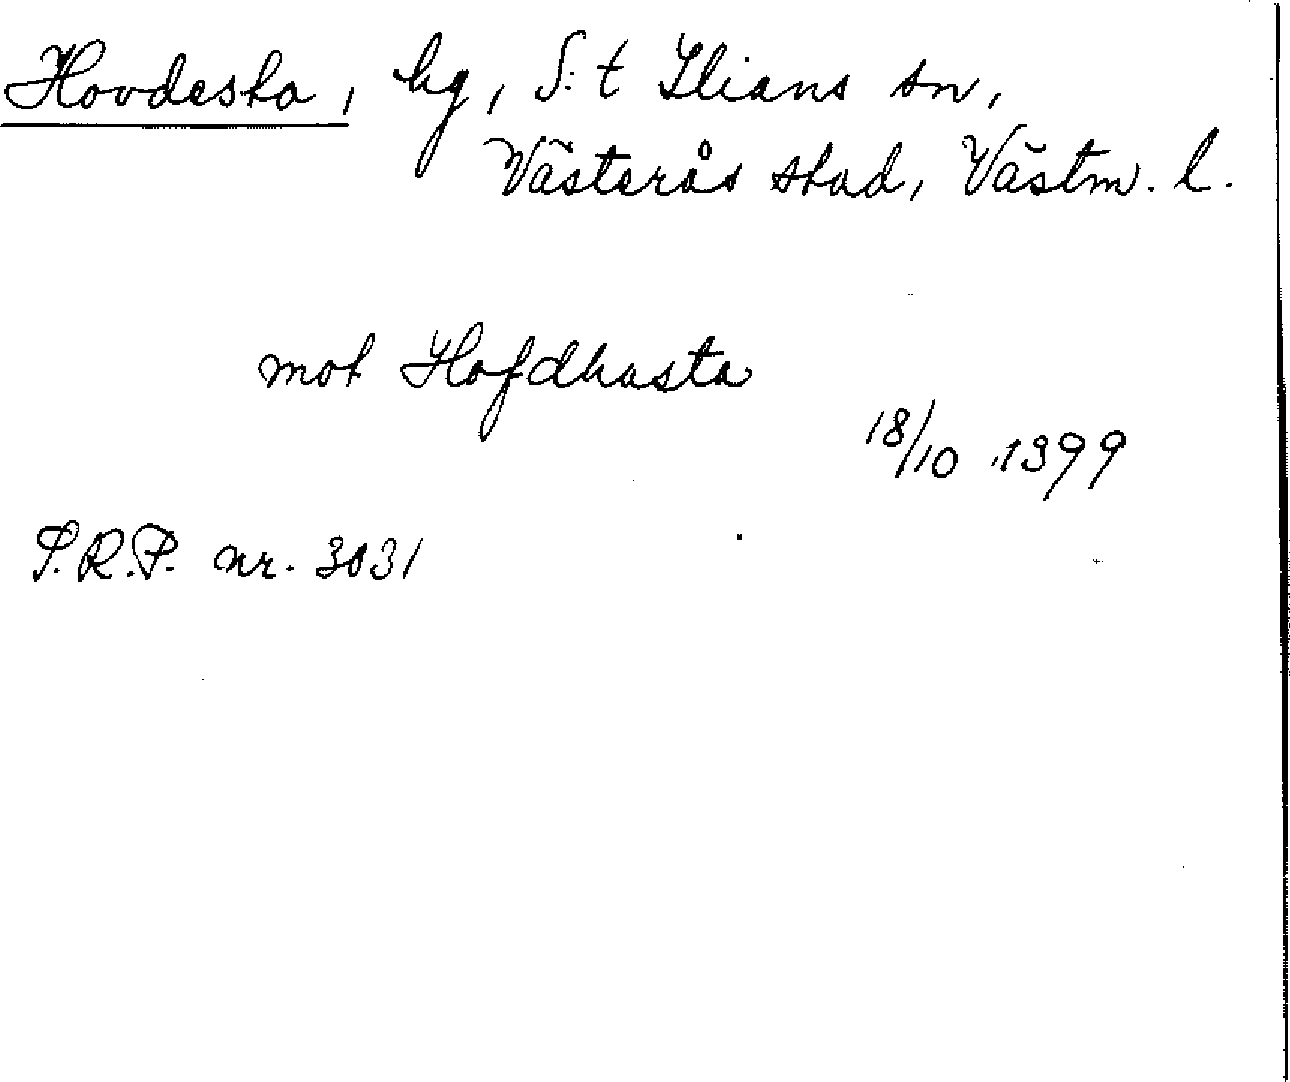 Hovdesta, bg, S:t Ilians sn,
Västerås stad, Västm. l.
mot Hofdhasta
18/10 1399
S.R.P. nr. 3031